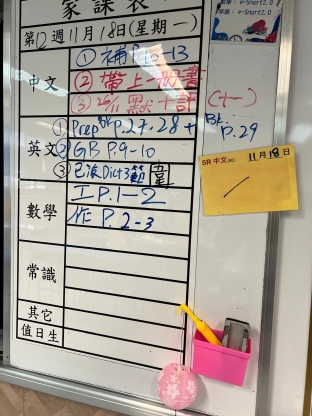 家課表
第12週11月18日(星期一)
中文
① 補 P.10-13
② 帶上一冊書
③ 默十評 (十一)
英文
① Prep Bk P.27, 28 + Bk. P.29
② GB P.9-10
③ 已派Dict 3範圍
數學
工 P.1-2
作 P.2-3
常識
其它
值日生
SR 中文 11月18日
e-Smart 2.0
e-Smart 2.0